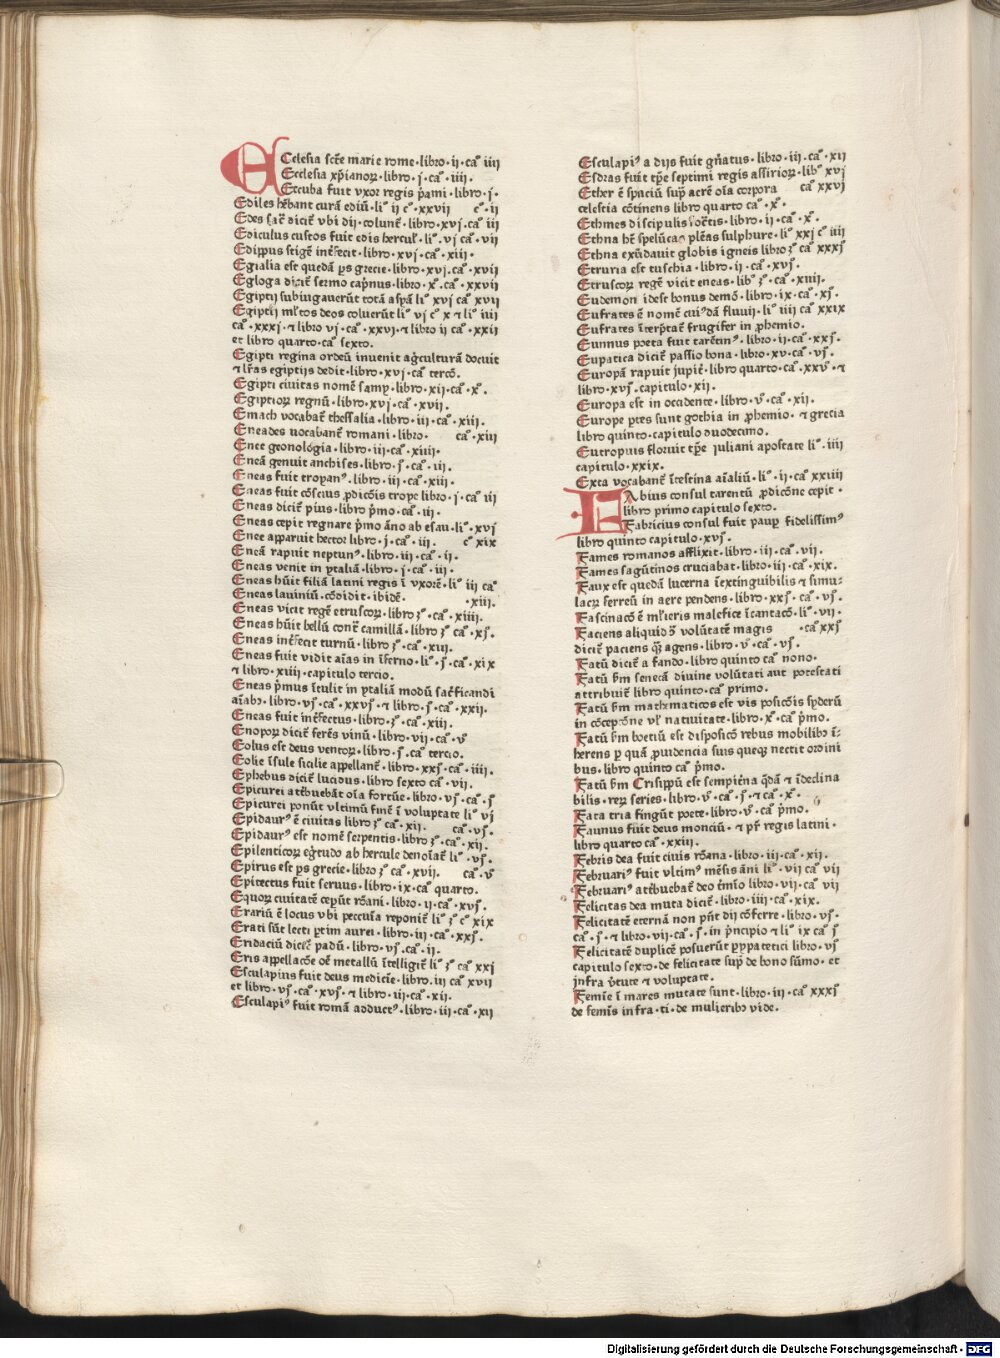 ECclesia scte marie rome·libro·ii·ca iiii
Ecclesia xp̄ianoꝝ·libro·j·ca·iiii·
Eccuba fuit vxor regis p̄ami·libro·j·
Ediles hēbant curā ediū·li ii c·xxvii c·ii
Edes sac̄ dicit̄ vbi dii·colunt̄·libro·xvj·ca iii
Ediculus custos fuit edis hercul̄·li·vj ca·vii
Edippus feigē int̄fecit·libro·xvj·ca·xiii·
Egialia est quedā ps grecie·libro·xvj·ca·xvii
Egloga dicit̄ sermo cap̄nus·libro·x·ca·xxvii
Egiptij subiugauerūt totā aspā li xvj ca xvij
Egiptij ml̄tos deos coluerūt li vj c x ⁊ li iiij
ca·xxxj·⁊ libro vj·ca·xxvj·⁊ libro ii ca·xxii
et libro quarto·ca sexto·
Egipti regina ordeū inuenit ag̓culturā docuit
⁊ lr̄as egiptijs dedit·libro·xvj·ca tercō·
Egipti ciuitas nomē samy·libro·xii·ca·x·
Egiptioꝝ regnū·libro·xvj·ca·xvii·
Emach vocabat̄ thessalia·libro·iii·ca·xiii·
Eneades uocabant̄ romani·libro· ca·xiii
Enee geonologia·libro·iii·ca·xiiii·
Eneā genuit anchises·libro·j·ca·iii·
Eneas fuit tropanꝰ·libro·iii·ca·xiii·
Eneas fuit cōscius ꝓdicōis trope libro·j·ca iii
Eneas dicit̄ pius·libro p̄mo·ca·iii·
Eneas cepit regnare p̄mo āno ab esau·li·xvj
Enee apparuit hector libro·j·ca·iii· c xix
Eneā rapuit neptunꝰ·libro·iii·ca·ii·
Eneas venit in ytaliā·libro·j·ca·iii·
Eneas hūit filiā latini regis ī vxorē·li iii ca
Eneas lauiniū·cōdidit·ibidē ·xiii·
Eneas vicit regē etruscoꝝ·libro 3·ca·xiiii·
Eneas hūit bellū cont̄ camillā·libro 3 ca·xj·
Eneas int̄fecit turnū·libro 3·ca·xiij·
Eneas fuit vidit aīas in īferno·li·j·ca·xix
⁊ libro·xiiii·capitulo tercio·
Eneas p̄mus ītulit in ytaliā modū sac̄ficandi
aīabꝫ·libro·vj·ca·xxvj·⁊ libro·j·ca·xxij·
Eneas fuit int̄fectus·libro·3·ca·xiii·
Enopoꝝ dicit̄ ferēs vinū·libro·vii·ca·v
Eolus est deus ventoꝝ·libro·j·ca tercio·
Eolie īsule sicilie appellant̄·libro·xxj·ca·iiii·
Ephebus dicit̄ lucidus·libro sexto ca·vii·
Epicurei att̓buebāt oīa fortūe·libro·vj·ca·j
Epicurei ponūt vltimū finē ī voluptate li vj
Epidaurꝰ ē ciuitas libro 3 ca·xii· ca·vj·
Epidaurꝰ est nomē serpentis·libro 3·ca·xii·
Epilenticoꝝ eg̓tudo ab hercule denoīat̄ li·vj·
Epirus est ps grecie·libro 3 ca·xvij· ca·v
Epitectus fuit seruus·libro·ix·ca quarto·
Equoꝝ ciuitatē cepūt rōani·libro·ii·ca·xvj·
Erariū ē locus vbi peccuīa reponit̄ li 3 c xix
Erati sūt lecti ꝑtim aurei·libro·iii·ca·xxj·
Eridaciū dicit̄ padū·libro·vj·ca·ii·
Eris appellacōe oē metallū ītelligit̄ li 3 ca xxj
Esculapius fuit deus medicīe·libro·iii ca xvii
et libro·vj·ca·xvj·⁊ libro·iii·ca·xii·
Esculapiꝰ fuit romā adductꝰ·libro·iii·ca·xij
Esculapiꝰ a dijs fuit gn̄atus·libro·iii·ca·xij
Esdras fuit tp̄e septimi regis assirioꝝ·lib xvj
Ether ē spaciū sup̄ aerē oīa corpora ca xxvj
celestia cōtinens libro quarto ca·x·
Ethmes discipulis socr̄tis·libro·ii·ca·x·
Ethna hꝫ spelūcas plēas sulphure·li xxj c iiii
Ethna exūdauit globis igneis libro 3 ca xxxj
Etruria est tuschia·libro·ii·ca·xvj·
Etruscoꝝ regē vicit eneas·lib 3·ca·xiiii·
Eudemon idest bonus demō·libro·ix·ca·xj·
Eufrates ē nomē cuiꝰdā fluuij·li iiii ca xxix
Eufrates īterp̄tat̄ frugifer in ꝓhemio·
Eunnus poeta fuit tarētinꝰ·libro·ii·ca·xxj·
Eupatica dicit̄ passio bona·libro·xv·ca·vj·
Europā rapuit jupiē·libro quarto·ca·xxv·⁊
libro·xvj·capitulo·xii·
Europa est in occidente·libro·v·ca·xii·
Europe ptes sunt gothia in ꝓhemio·⁊ grecia
libro quinto·capitulo duodecimo·
Eutropius floruit tp̄e iuliani apostate li·iiii
capitulo·xxix·
Exta vocabant̄ ītestina aīaliū·li·ii·ca·xxiiii
FAbius consul tarentū ꝓdicōne cepit·
libro primo capitulo sexto·
Fabricius consul fuit pauꝑ fidelissimꝰ
libro quinto capitulo·xvj·
Fames romanos afflixit·libro·iii·ca·vii·
Fames sagūtinos cruciabat·libro·iii·ca·xix·
Faux est quedā lucerna īextinguibilis ⁊ simu-
lacꝝ ferreū in aere pendens·libro·xxj·ca·vj·
Fascinacō ē ml̓ieris malefice īcantacō·li·vii·
Faciens aliquid ꝯ volūtatē magis ·ca xxj
dicit̄ paciens qꝫ agens·libro·v·ca·vj·
Fatū dicit̄ a fando·libro quinto ca nono·
Fatū ẜm senecā diuine volūtati aut potestati
attribuit̄ libro quinto·ca primo·
Fatū ẜm mathematicos est vis posicōis syderū
in cōcepcōne vl̓ natiuitate·libro·x·ca p̄mo·
Fatū ẜm boetiū est disposicō rebus mobilibꝫ ī-
herens ꝑ quā ꝓuidencia suis queqꝫ nectit ordini
bus·libro quinto ca p̄mo·
Fatū ẜm Crisippū est sempitēna qdā ⁊ īdeclina
bilis·reꝝ series·libro·v·ca·j ⁊ ca·x·
Fata tria fingūt poete·libro·v·ca p̄mo·
Faunus fuit deus monciū·⁊ pr̄ regis latini·
libro quarto ca·xxiii·
Febris dea fuit ciuis rōana·libro·iii·ca·xii·
Februariꝰ fuit vltimꝰ mēsis āni li·vii ca vii
Februariꝰ att̓buebat̄ deo t̓mīo libro·vii·ca vii
Felicitas dea muta dicit̄·libro·iiii·ca·xix·
Felicitatē eternā non pn̄t dij cōferre·libro·vj·
ca·j·⁊ libro·vii·ca·j·in p̄ncipio ⁊ li ix ca j
Felicitatē duplicē posuerūt ꝑypatetici libro·vj
capitulo sexto·de felicitate sup̄ de bono sūmo·et
jnfra v̓tute ⁊ voluptate·
Femīe ī mares mutate sunt·libro·iii·ca xxxj
de femīs infra·ti·de mulieribꝫ vide·
Digitalisierung gefördert durch die Deutsche Forschungsgemeinschaft - DFG